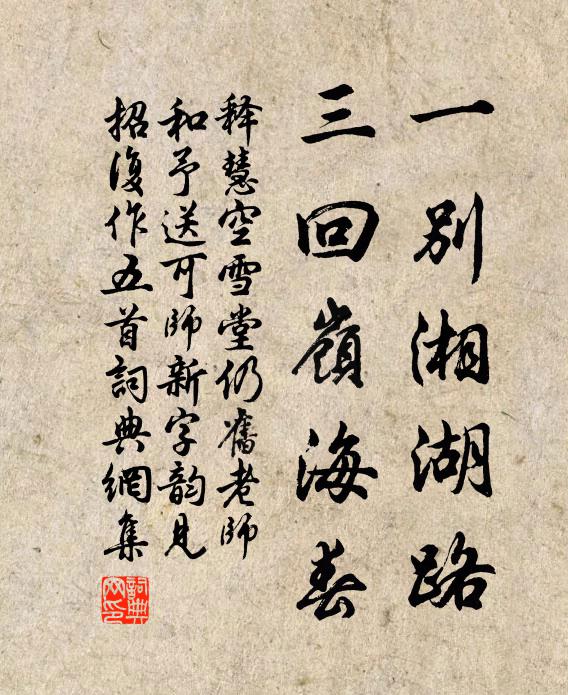 一别湘湖路
三回嶺海春
释慧空雪堂仍舊老师
和予送可师新字韵見
招復作五首詞典網集
詞典网印